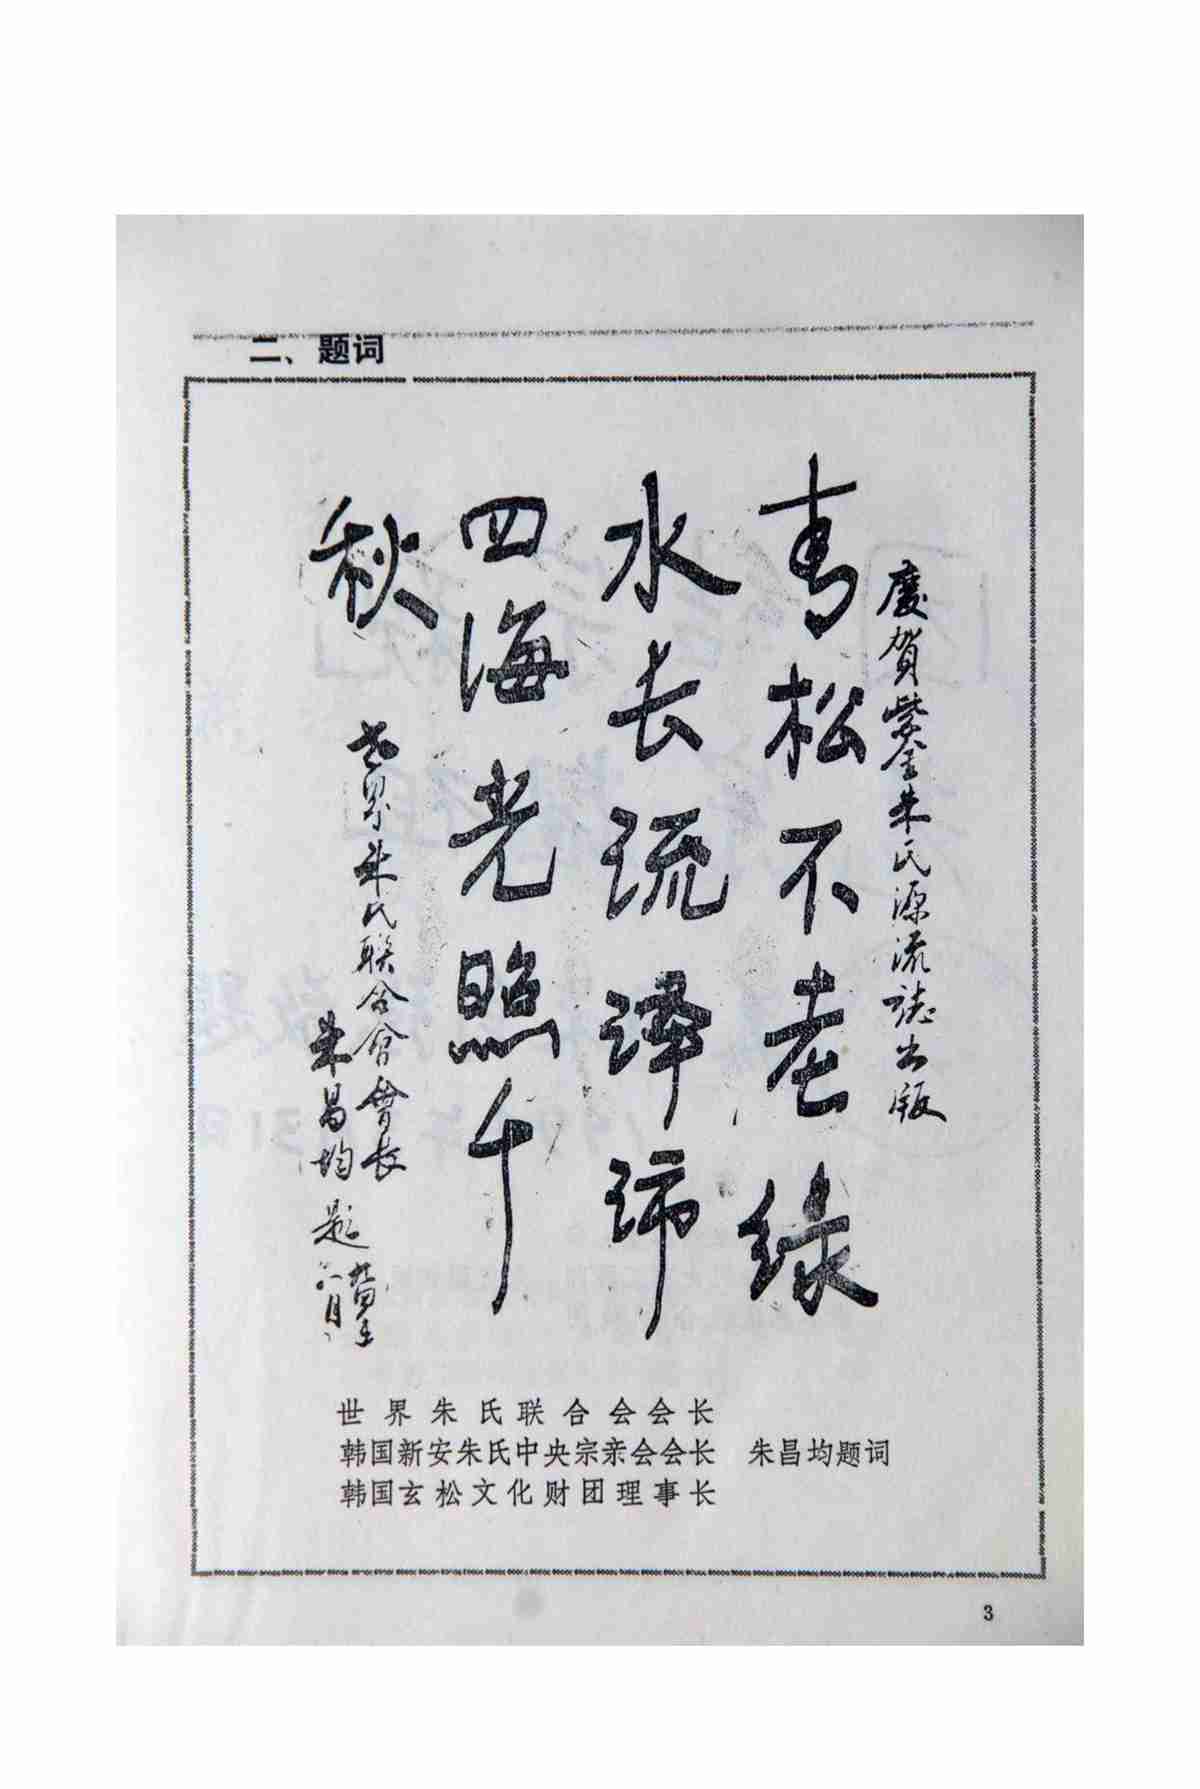 二、题词
慶賀紫金朱氏源流誌出版
青松不老绿
水长流译谛
四海光照千
秋
世界朱氏联合會會长
朱昌均题
六月
世界朱氏联合会会长
韩国新安朱氏中央宗亲会会长 朱昌均题词
韩国玄松文化财团理事长
3